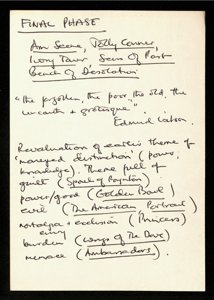 FINAL PHASE
Am Scene, Jolly Corner,
Ivory Tower Sense of Past
Bench of Desolation
"the forgotten, the poor the old, the
uncouth & grotesque"
Edmund Wilson.
Revaluation of earlier theme of
"managed destruction" (power,
knowledge). Theme full of
guilt (Spoils of Poynton)
power/good (Golden Bowl)
evil (The American Portrait)
nostalgia & exclusion (Princess)
envy
burden (Wings of the Dove)
menace (Ambassadors).